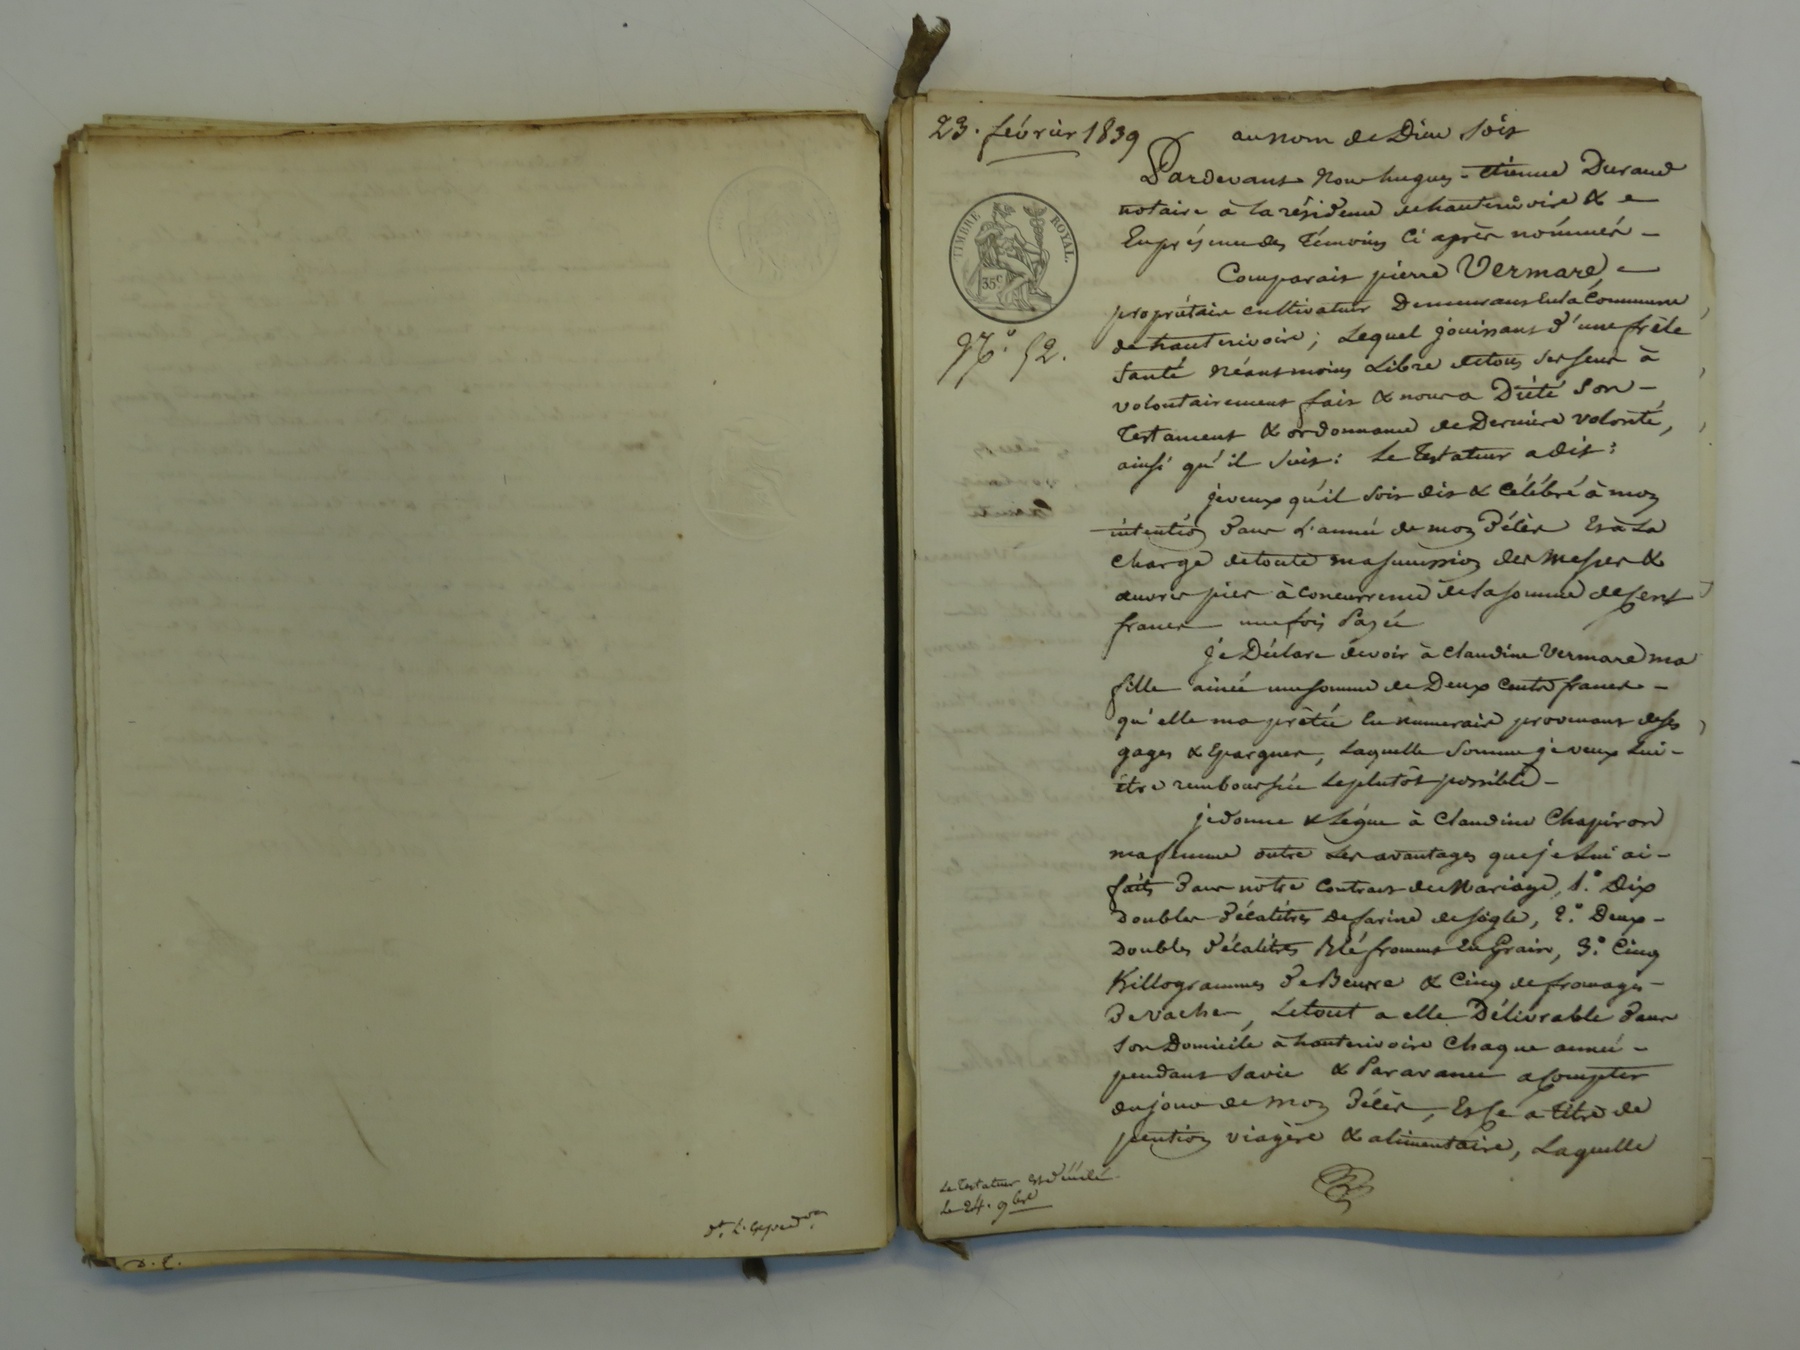 dt. L. expéd.on
D. E.
23. février 1839
au nom de Dieu soit
TIMBRE ROYAL.
35c.
No. 52.
Pardevant Nous hugues-étienne Durand
notaire à la résidence de hauterivoire &
En présence des témoins Ci après nommés –
Comparait pierre Vermare,
propriétaire cultivateur Demeurant En la Commune
de hauterivoire; Lequel jouissant d'une frèle
santé Néantmoins Libre de tous ses sens à
volontairement fait & nous a Dicté son –
testament & ordonnance de Derniere volonté,
ainsi qu'il suit: Le testateur a dit:
je veux qu'il soit dit & Célébré à mon
intention Dans L'année de mon Décès Et à La
charge de toute ma succession des messes &
œuvres pies à Concurrence de la somme de Cent
francs une fois Payée
je Déclare devoir à Claudine Vermare ma
fille ainée une somme de Deux Cents francs –
qu'elle ma prétée En numeraire provenant de ses
gages & Epargnes, Laquelle somme je veux Lui –
étre remboursée Le plutôt possible –
je donne & Légue à Claudine Chapiron
ma femme outre Les avantages que je Lui ai –
faits Dans notre Contract de Mariage, 1.° Dix
Doubles Décalitres De farine de ségle, 2.° Deux –
Doubles Décalitres Blé froment En Grain, 3.° Cinq
Killogrammes De Beurre & Cinq de fromages –
De vaches, Le tout a elle Délivrable Dans
son Domicile à hauterivoire Chaque année –
pendant sa vie & Par avance a Compter
du jour de mon Décès, Et Ce a titre de
pention viagère & alimentaire, Laquelle
Le Testateur est décédé
Le 24. 9bre